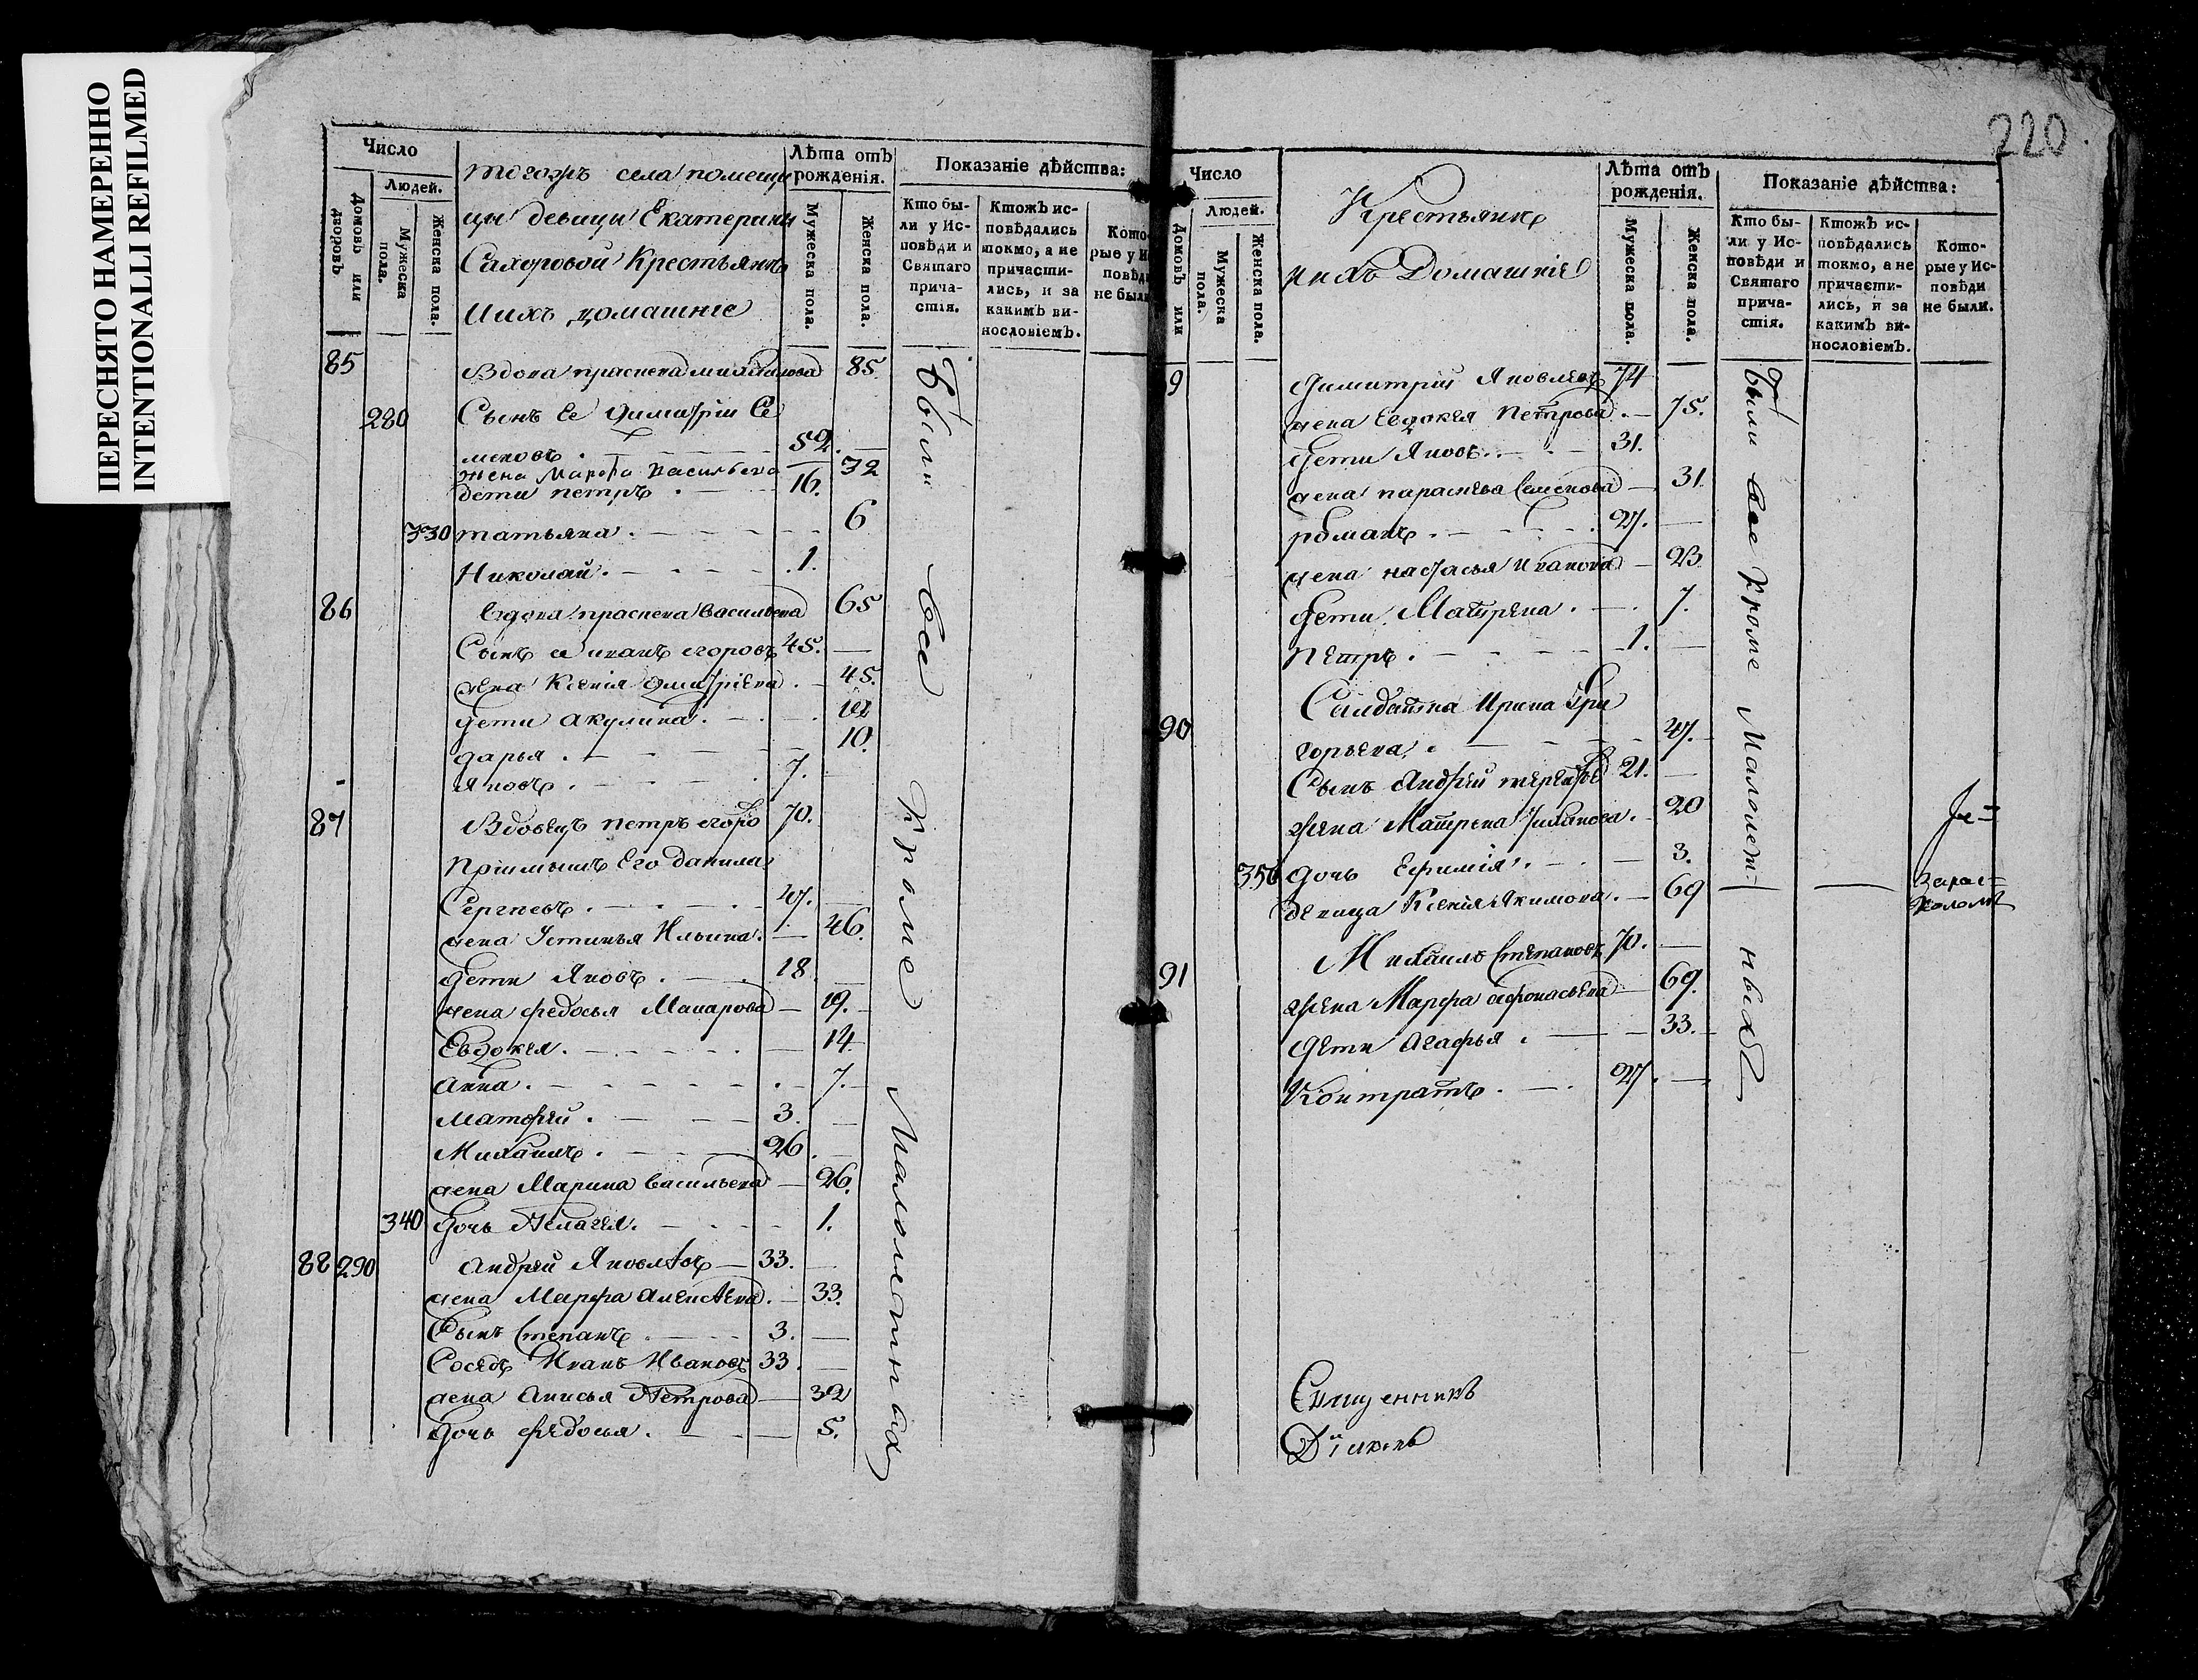 ПЕРЕСНЯТО НАМЕРЕННО
INTENTIONALLI REFILMED
220
Число
Людей.
Домовъ или дворовъ
Мужеска пола.
Женска пола.
тогожъ села помещи
цы девицы Екатерины
Сахоровой Крестьяне
Иихъ домашніе
Лѣта отъ рожденія.
Мужеска пола.
Женска пола.
Показаніе дѣйства:
Кто были у Исповѣди и Святаго причастія.
Ктожъ исповѣдались токмо, а не причастились, и за какимъ винословіемъ.
85 Вдова праскева 85
280 Сынъ Ее димитріи Се
меновъ 52
жена Марфа васильева 32
дети петръ 16.
330 татьяна 6
Николай 1.
86 вдова праскева васильева 65
Сынъ ее иванъ егоровъ 45.
жена Ксенія дмитріева 45.
дети акулина
дарья 10.
Яковъ 7.
87 Вдовецъ петръ егоро 70.
Пріимышъ Его данила
Сергеевъ 47.
жена Устинья Ильина 46.
дети Яковъ 18.
жена федосья Макарова 19.
Евдокея 14
анна 7.
матфей 3.
Михаилъ 26.
жена Марина васильева 26.
340 дочь Пелагея 1.
88 290 андрей Яковлевъ 33.
жена Марфа алексеева 33.
Сынъ Степанъ 3.
Соседъ Иванъ Ивановъ 33.
жена анисья Петрова 32
дочь федосья 5.
были все кроме Малолетныхъ
Число
Людей.
Домовъ или
Мужеска пола.
Женска пола.
Крестьяне
ихъ Домашніе
Лѣта отъ рожденія.
Мужеска пола.
Женска пола.
Показаніе дѣйства:
Кто были у Исповѣди и Святаго причастія.
Ктожъ исповѣдались токмо, а не причастились, и за какимъ винословіемъ.
Которые у Исповѣди не были.
9 димитріи Яковлевъ 74
жена Евдокея Петрова 75.
дети Яковъ 31.
жена параскева Семенова 31
романъ 27.
жена настасья иванова 23
дети Матрена 7.
петръ 1.
90 Салдатка Ирина Гри
горьева 47.
Сынъ Андрей 21.
жена Матрена 20
356 дочь Ефимія 3.
девица Ксенія Якимова 69
91 Михаилъ Степановъ 70.
жена Марфа афонасьева 69.
дети агафья 33.
Контратъ 27.
были все кроме Малолетныхъ
Зарас-
коломъ
Священникъ
Діаконъ